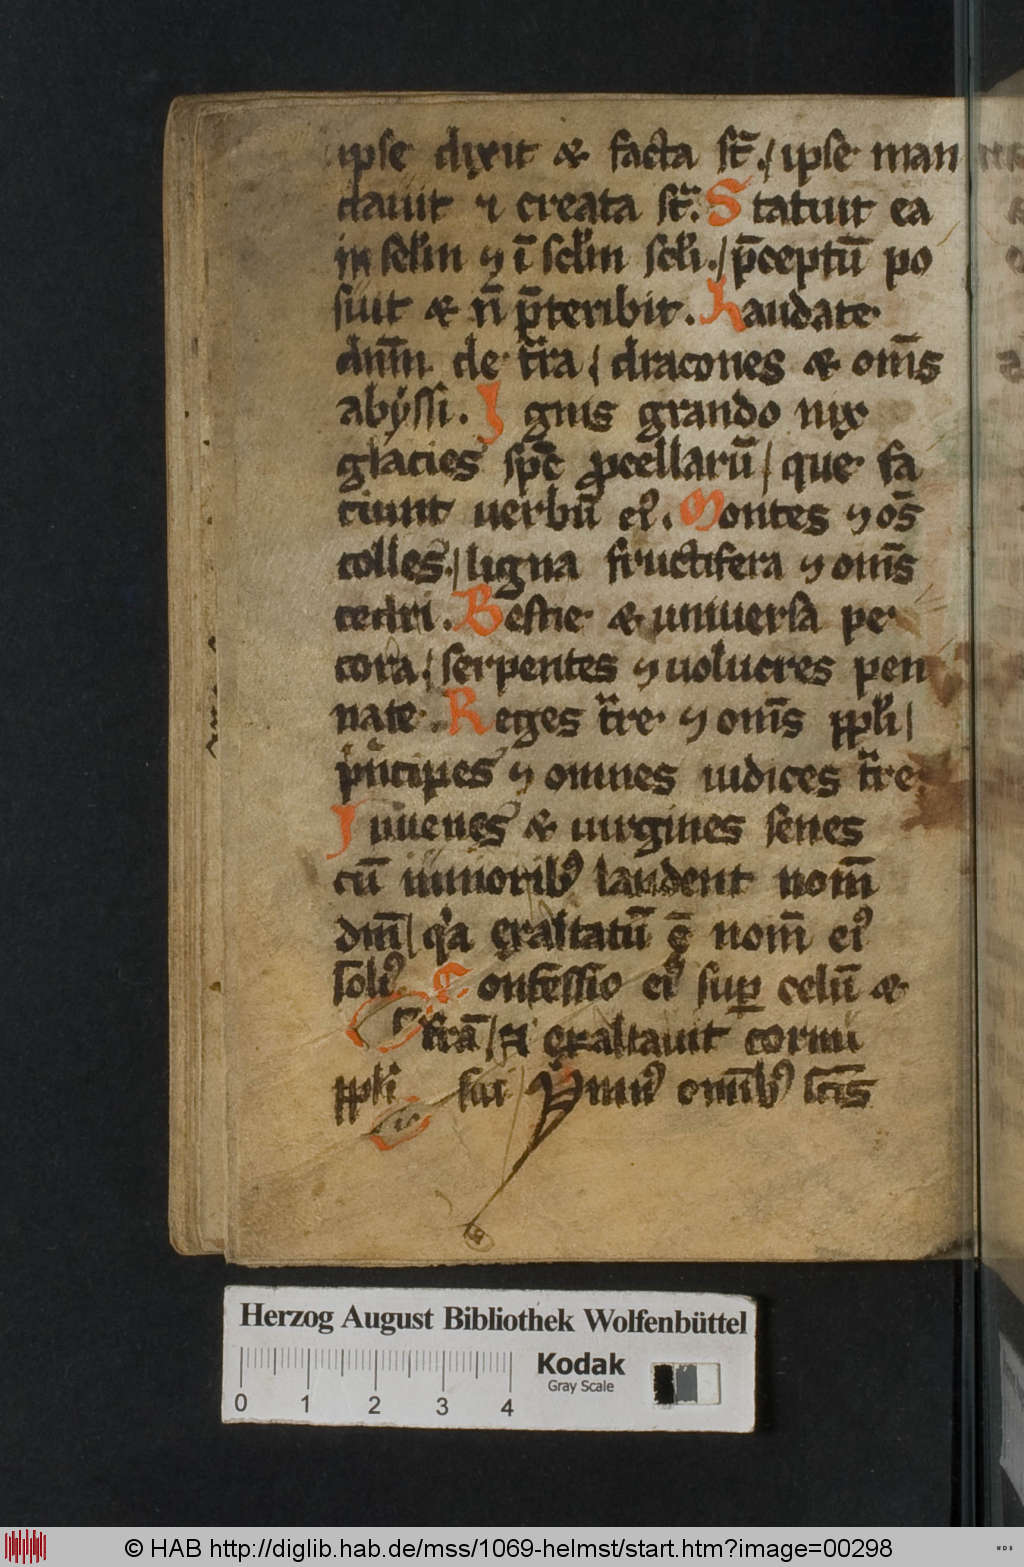 ipse dixit & facta st̄./ ipse man
dauit ⁊ creata st̄. Statuit ea
in sclm̄ ⁊ ī sclm̄ scl̄i./ p̄ceptū po
suit & n̄ p̄teribit. Laudate
dnm̄ de t̄ra / dracones & om̄s
abyssi. Ignis grando nix
glacies sp̄c ꝓcellarū / que fa
ciunt uerbū ei⁹. Montes ⁊ oš
colles./ ligna fructifera ⁊ om̄s
cedri. Bestie & uniuersa pe
cora / serpentes ⁊ uolucres pen
nate. Reges t̄re ⁊ om̄s ppl̄i /
pͥncipes ⁊ omnes iudices t̄re
Iuuenes & uirgines senes
cū iunioribꝰ laudent nom̄
dnī / qͥa exaltatū ē nom̄ eiꝰ
soliꝰ Confessio eiꝰ suꝑ celū &
t̄rā / ⁊ exaltauit cornu
ppl̄i sui Ymnꝰ omībꝰ scīs
Herzog August Bibliothek Wolfenbüttel
Kodak
Gray Scale
0 1 2 3 4
© HAB http://diglib.hab.de/mss/1069-helmst/start.htm?image=00298